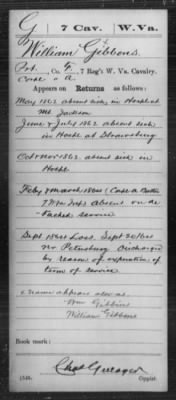 G 7 Cav. W. Va.
William Gibbons.
Pvt., Co. G, 7 Reg't W. Va. Cavalry.
Corse " A.
Appears on Returns as follows:
May 1862 absent sick in Hospital
Mt. Jackson
June & July 1862 absent sick
in Hospt at Strausburg
Oct & Nov 1862 absent sick in
Hospt
Feby & March 1864 (Corse A Battn
7 Wva Infy) absent on de-
tached service
Sept 1864 Loss. Sept 20/64
Nr. Petersburg Discharged
by reason of expiration of
term of service.
& name appears also as.
Wm Gibbins
William Gibbons
Book mark:
(546)
Copyist.